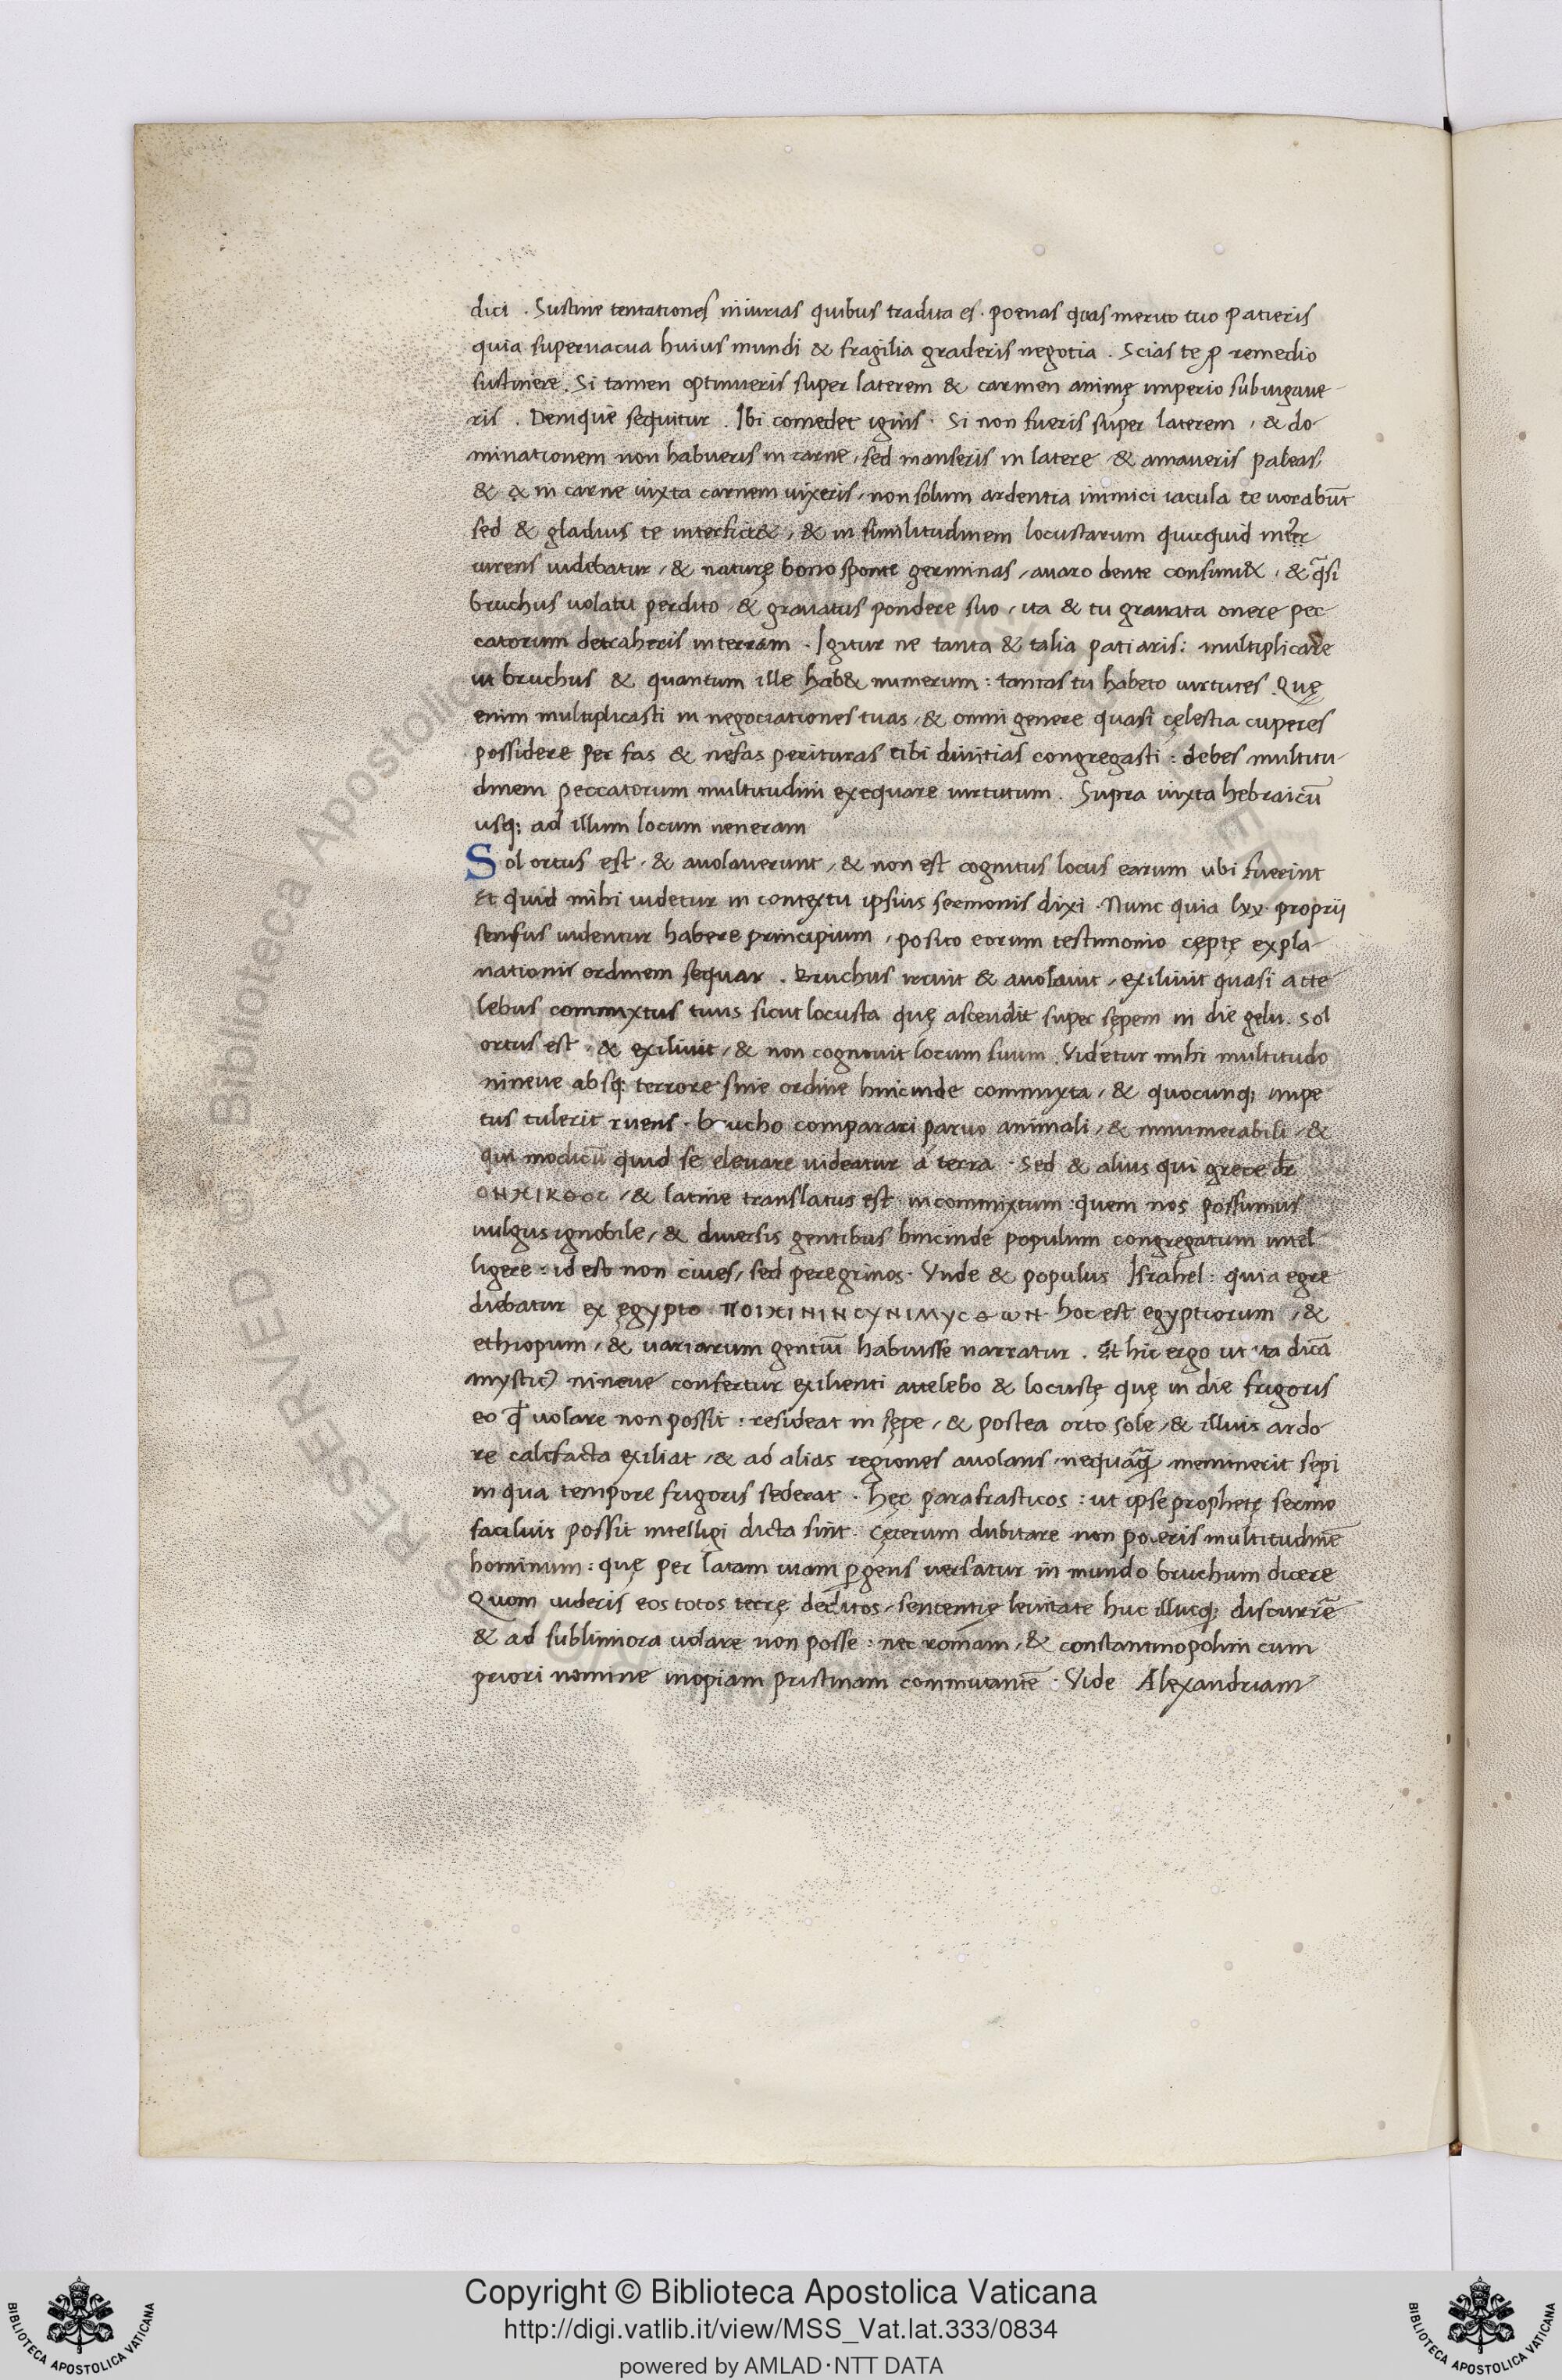 dici . Sustine tentationes iniurias quibus tradita es . poenas quas merito tuo patieris
quia superuacua huius mundi & fragilia graderis negotia . Scias te ꝓ remedio
sustinere . Si tamen optinueris super laterem & carmen animę imperio subiugaue
ris . Denique sequitur . Ibi comedet ignis . Si non fueris super laterem , & do
minationem non habueris in carne , sed manseris in latere & amaueris paleas,
& in carne iuxta carnem uixeris , non solum ardentia inimici iacula te uorabūt
sed & gladius te interfici& , & in similitudinem locustarum quicquid
uirens uidebatur , & naturę bono sponte germinas , auaro dente consum& , & q̄si
bruchus uolatu perdito & grauatus pondere suo , ita & tu grauata onere pec
catorum detraheris in terram . Igitur ne tanta & talia patiaris : multiplicare
ut bruchus & quantum ille hab& numerum : tantas tu habeto uirtutes . Quę
enim multiplicasti in negociationes tuas , & omni genere quasi cęlestia cuperes
possidere per fas & nefas perituras tibi diuitias congregasti : debes multitu
dinem peccatorum multitudini exęquare uirtutum . Supra iuxta hebraicū
usq; ad illum locum ueneram
Sol ortus est , & auolauerunt , & non est cognitus locus earum ubi fuerint
Et quid mihi uidetur in contextu ipsius sermonis dixi . Nunc quia lxx . proprii
sensus uidentur habere principium , posito eorum testimonio cęptę expla
nationis ordinem sequar . Bruchus irruit & auolauit , exiliuit quasi atte
lebus commixtus tuus sicut locusta quę ascendit super sępem in die gelu . Sol
ortus est , & exiliuit , & non cognouit locum suum . Videtur mihi multitudo
nineue absq; terrore sine ordine hincinde commixta , & quocunq; impe
tus tulerit ruens . brucho comparari paruo animali , & innumerabili , &
qui modicū quid se eleuare uideatur a terra . Sed & alius qui grece dr̄
& latine translatus est incommixtum : quem nos possumus
uulgus ignobile , & diuersis gentibus hincinde populum congregatum intel
ligere : id est non ciues , sed peregrinos . Vnde & populus Israhel : quia egre
diebatur ex ęgypto ΠΟΙΧΙΝΙΝCΥΝΙΜΥCΘωΝ hoc est egyptiorum , &
ethiopum , & uariarum gentiū habuisse narratur . Et hic ergo ut ita dicā
nineue confertur exilienti attelebo & locustę quę in die frigoris
eo ꝙ uolare non possit : resideat in sępe , & postea orto sole , & illius ardo
re calefacta exiliat , & ad alias regiones auolans , nequaq̄ meminerit sepi
in qua tempore frigoris sederat . Hęc parafrasticos : ut ipse prophetę sermo
facilius possit intelligi dicta sint . Cęterum dubitare non poteris multitudinē
hominum : quę per latam uiam ꝑgens uersatur in mundo bruchum dicere
Quom uideris eos totos terrę deditos , sententię leuitate huc illucq; discurrē
& ad sublimiora uolare non posse : nec romam , & constantinopolim cum
priori nomine inopiam pristinam commutantē . Vide Alexandriam
Copyright © Biblioteca Apostolica Vaticana
http://digi.vatlib.it/view/MSS_Vat.lat.333/0834
powered by AMLAD·NTT DATA